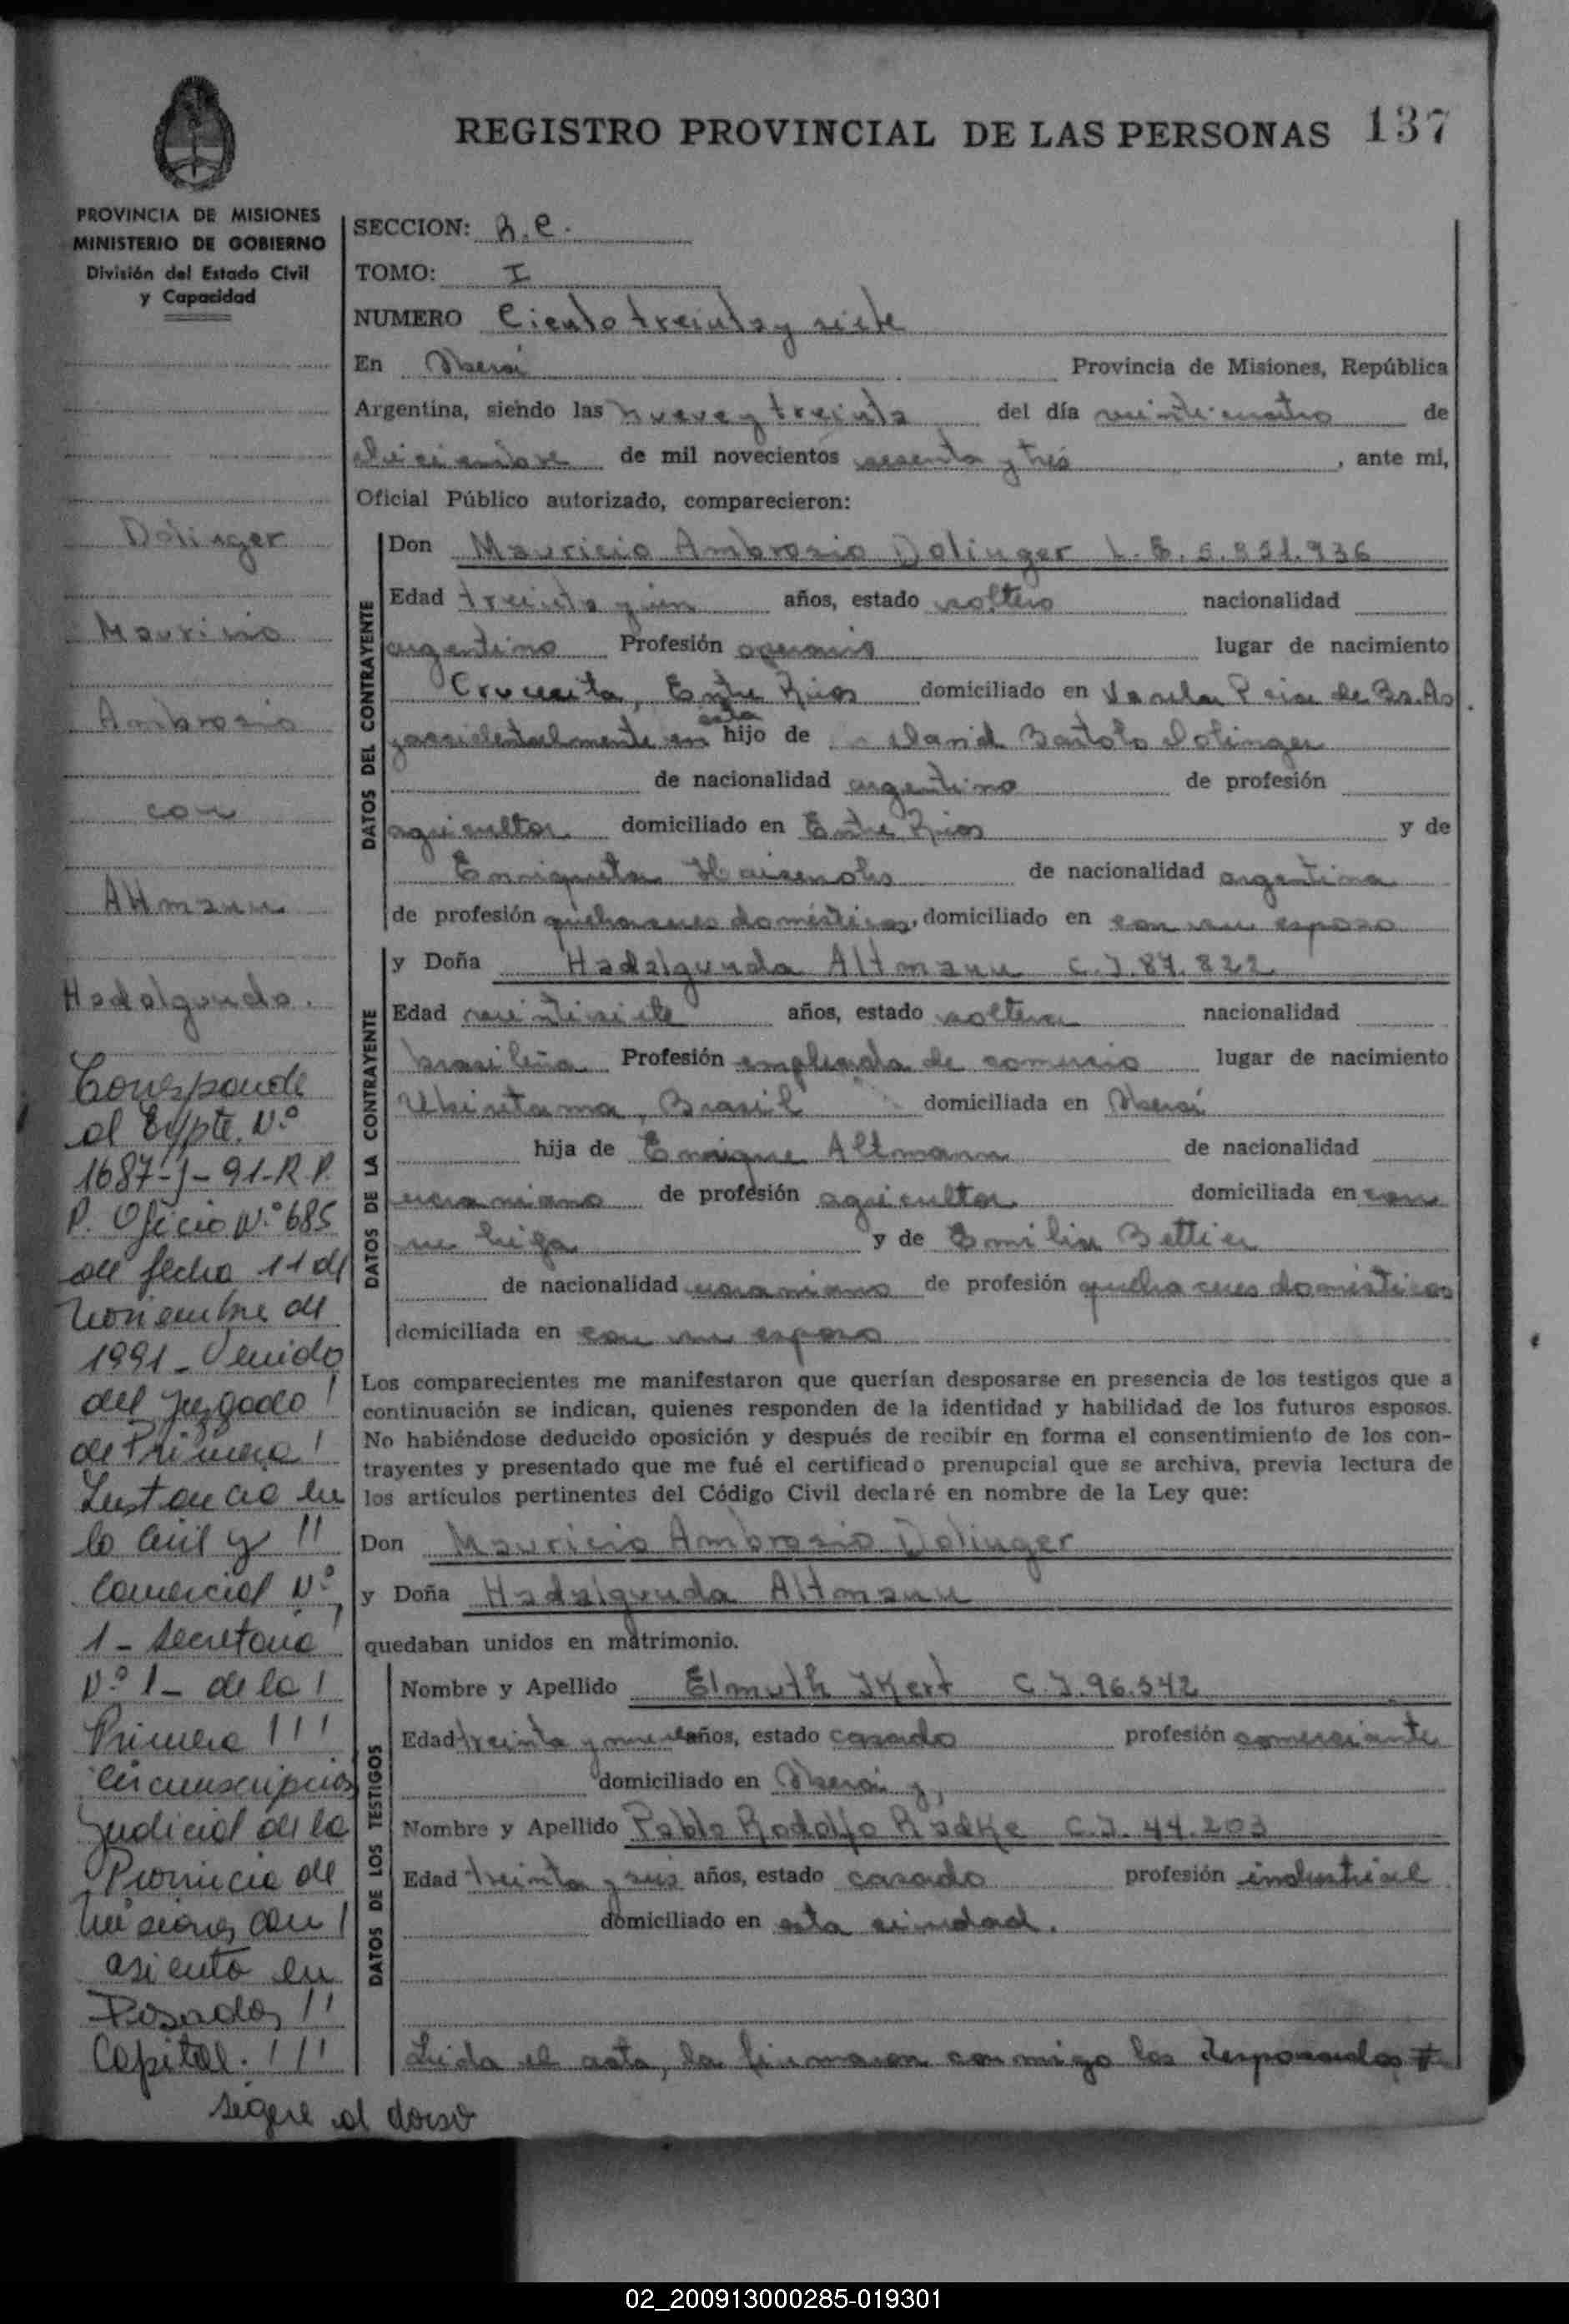 REGISTRO PROVINCIAL DE LAS PERSONAS 137
PROVINCIA DE MISIONES
MINISTERIO DE GOBIERNO
División del Estado Civil
y Capacidad
Dolinger
Mauricio
Ambrosio
con
Altmann
Hadalgunda.
Corresponde
al Expte. N.º
1687-J-91-R.P.
P. Oficio N.º 685
de fecha 11 de
Noviembre de
1991 - Venido
del Juzgado !
de Primera !
Instancia en
lo Civil y !!
Comercial N.º
1 - Secretaria !
N.º 1 - de la !
Primera !!!
Circunscripción
Judicial de la
Provincia de
Misiones con !
asiento en
Posadas !!
Capital. !!!
sigue al dorso
SECCION: R.C.
TOMO: I
NUMERO Ciento treinta y siete
En Oberá Provincia de Misiones, República
Argentina, siendo las nueve y treinta del día veinticuatro de
diciembre de mil novecientos sesenta y tres, ante mi,
Oficial Público autorizado, comparecieron:
DATOS DEL CONTRAYENTE
Don Mauricio Ambrosio Dolinger L.E. 5.821.936
Edad treinta y un años, estado soltero nacionalidad
argentino Profesión operario lugar de nacimiento
Crucecita, Entre Ríos domiciliado en Varela Pcia de Bs. As.
y accidentalmente en esta hijo de David Bartolo Dolinger
de nacionalidad argentino de profesión
agricultor domiciliado en Entre Ríos y de
Enriqueta de nacionalidad argentina
de profesión quehaceres domésticos, domiciliado en con su esposo
DATOS DE LA CONTRAYENTE
y Doña Hadalgunda Altmann C.I. 87.822
Edad veintisiete años, estado soltera nacionalidad
brasileña Profesión empleada de comercio lugar de nacimiento
Ubiretama, Brasil domiciliada en Oberá
hija de Enrique Altmann de nacionalidad
ucraniano de profesión agricultor domiciliada en con
su hija y de Emilia Bettier
de nacionalidad ucraniano de profesión quehaceres domésticos
domiciliada en con su esposo
Los comparecientes me manifestaron que querían desposarse en presencia de los testigos que a
continuación se indican, quienes responden de la identidad y habilidad de los futuros esposos.
No habiéndose deducido oposición y después de recibir en forma el consentimiento de los con-
trayentes y presentado que me fué el certificado prenupcial que se archiva, previa lectura de
los artículos pertinentes del Código Civil declaré en nombre de la Ley que:
Don Mauricio Ambrosio Dolinger
y Doña Hadalgunda Altmann
quedaban unidos en matrimonio.
DATOS DE LOS TESTIGOS
Nombre y Apellido Elmuth Ikert C.I. 96.542
Edad treinta y nueve años, estado casado profesión comerciante
domiciliado en Oberá y,
Nombre y Apellido Pablo Rodolfo Radke C.I. 44.203
Edad treinta y seis años, estado casado profesión industrial
domiciliado en esta ciudad.
Leida el acta, la firmaron conmigo los desposados #
02_200913000285-019301